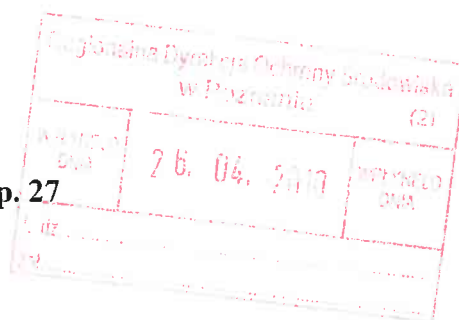 Regionalna Dyrekcja Ochrony Środowiska
w Poznaniu
(2)
WPŁYNĘŁO
DNIA
26. 04.
WPŁYNĘŁO
DNIA
p. 27